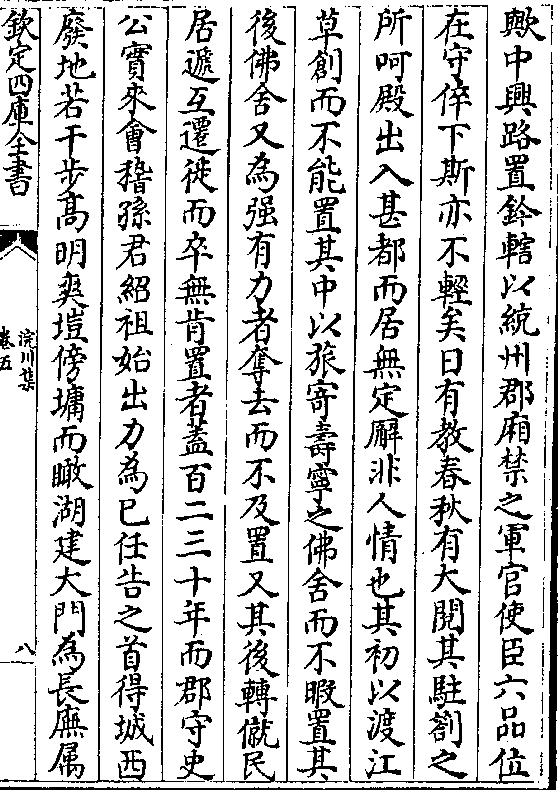 歟中興路置鈐轄以統州郡廂禁之軍官使臣六品位
在守倅下斯亦不輕矣日有教春秋有大閱其駐劄之
所呵殿出入甚都而居無定廨非人情也其初以渡江
草創而不能置其中以旅寄壽寧之佛舍而不暇置其
後佛舍又為强有力者奪去而不及置又其後轉僦民
居遞互遷徙而卒無肯置者蓋百二三十年而郡守史
公實來會稽孫君紹祖始出力為已任告之首得城西
廢地若干步髙明爽塏傍墉而瞰湖建大門為長廡属
欽定四庫全書
浣川集
卷五
八